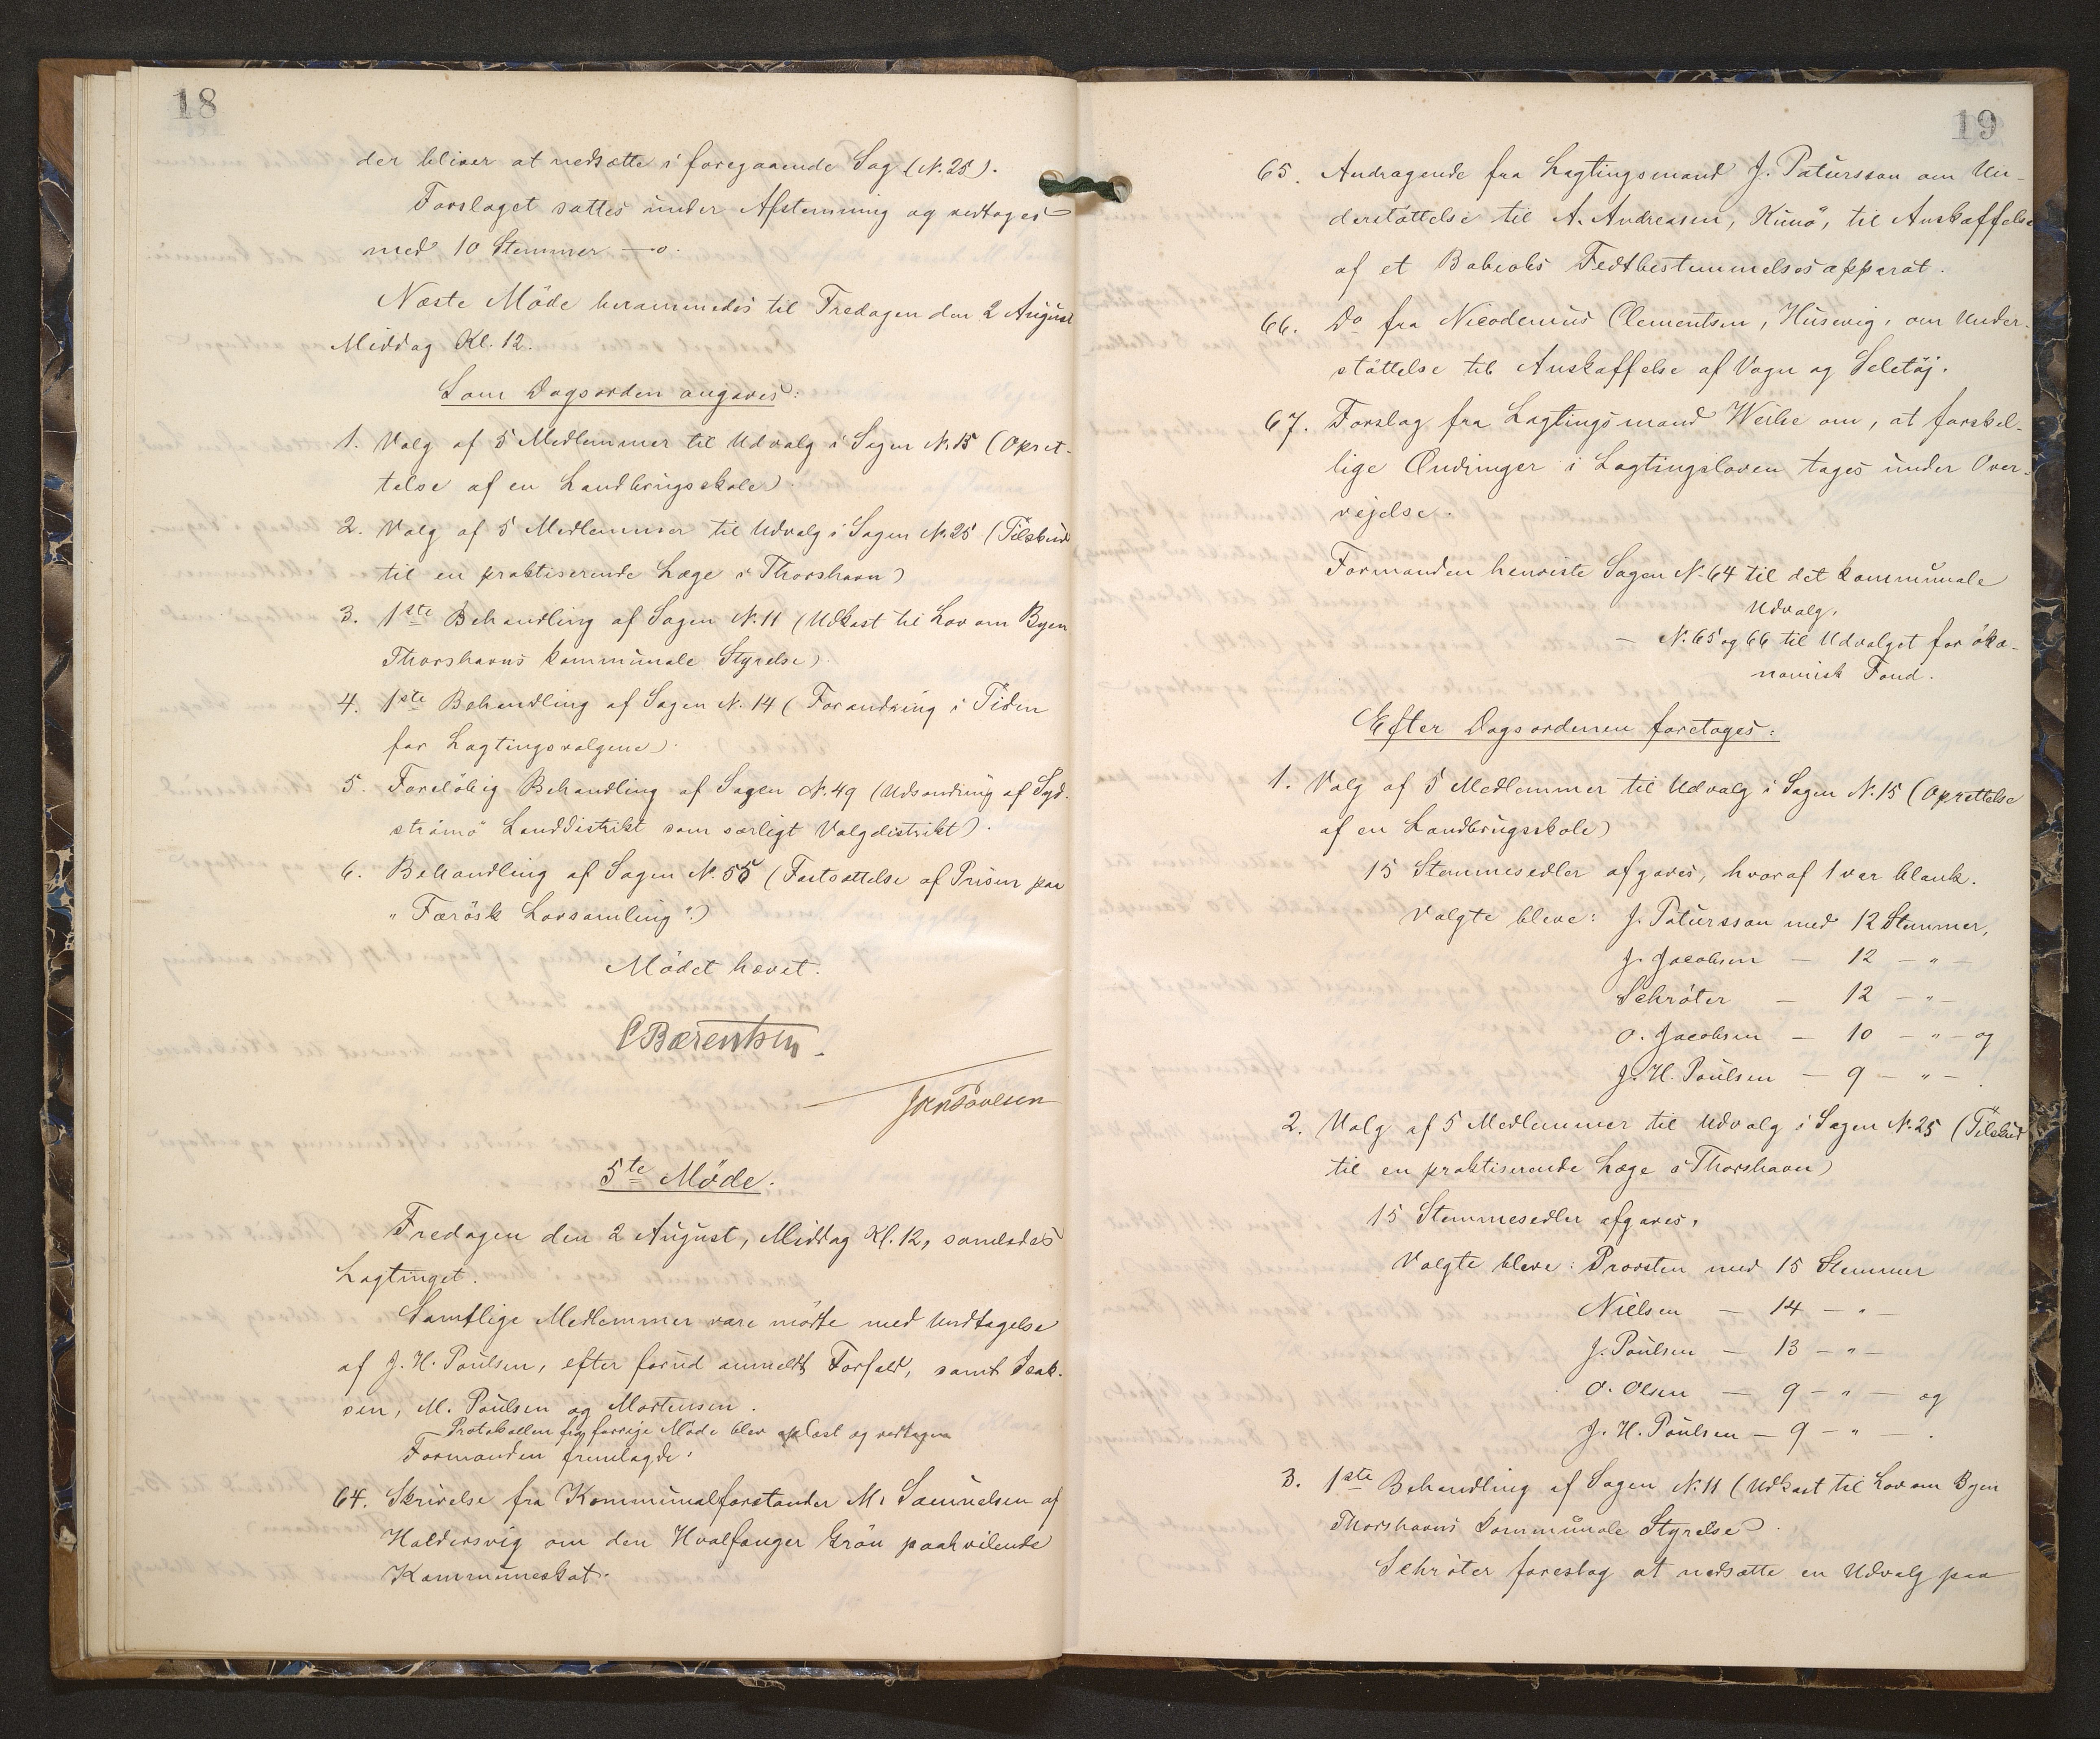 18
der bliver at nedsætte i foregaaende Sag (N. 25).
Forslaget sattes under Afstemning og vedtoges
med 10 Stemmer —o.
Næste Möde berammedes til Fredagen den 2 August
Middag Kl. 12.
Som Dagsorden angaves:
1. Valg af 5 Medlemmer til Udvalg i Sagen N. 15 (Opret-
telse af en Landbrugsskole).
2. Valg af 5 Medlemmer til Udvalg i Sagen N. 25 (Tilskud
til en praktiserende Læge i Thorshavn)
3. 1ste Behandling af Sagen N. 11 (Udkast til Lov om Byen
Thorshavns kommunale Styrelse).
4. 1ste Behandling af Sagen N. 14 (Forandring i Tiden
for Lagtingsvalgene).
5. Forelöbig Behandling af Sagen N. 49 (Udsondring af Syd-
strömö Landdistrikt som særligt Valgdistrikt).
6. Behandling af Sagen N. 55 (Fastsættelse af Prisen paa
"Færösk Lovsamling".)
Mödet hævet.
C Bærentsen.
5te Möde.
Fredagen den 2 August, Middag Kl. 12, samledes
Lagtinget.
Samtlige Medlemmer vare mödte med Undtagelse
af J. H. Poulsen, efter forud anmeldt Forfald, samt Isak-
sen, M. Poulsen og Mortensen.
Protokollen fra forrige Möde blev oplæst og vedtagen
Formanden fremlagde:
64. Skrivelse fra Kommunalforstander M. Samuelsen af
Haldersvig om den Hvalfanger Grön paahvilende
Kommuneskat.
19
65. Andragende fra Lagtingsmand J. Patursson om Un-
derstöttelse til A. Andreasen, Kunö, til Anskaffelse
af et Babcoks Fedtbestemmelsesapparat.
66. Do fra Nicodemus Clementsen, Husevig, om Under-
stöttelse til Anskaffelse af Vogn og Seletöj.
67. Forslag fra Lagtingsmand Weihe om, at forskel-
lige Ændringer i Lagtingsloven tages under Over-
vejelse.
Formanden henviste Sagen N. 64 til det kommunale
Udvalg.
— N. 65 og 66 til Udvalget for öko-
nomisk Fond.
Efter Dagsordenen foretoges:
1. Valg af 5 Medlemmer til Udvalg i Sagen N. 15 (Oprettelse
af en Landbrugsskole)
15 Stemmesedler afgaves, hvoraf 1 var blank.
Valgte bleve: J. Patursson med 12 Stemmer,
J. Jacobsen — 12 — " —
Schröter — 12 — " —
O. Jacobsen — 10 — " — og
J. H. Poulsen — 9 — " — .
2. Valg af 5 Medlemmer til Udvalg i Sagen N. 25 (Tilskud
til en praktiserende Læge i Thorshavn)
15 Stemmesedler afgaves.
Valgte bleve: Provsten med 15 Stemmer
Nielsen — 14 — " —
J. Poulsen — 13 — " —
O. Olsen — 9 — " — og
J. H. Poulsen — 9 — " — .
3. 1ste Behandling af Sagen N. 11 (Udkast til Lov om Byen
Thorshavns kommunale Styrelse).
Schröter foreslog at nedsætte en Udvalg paa